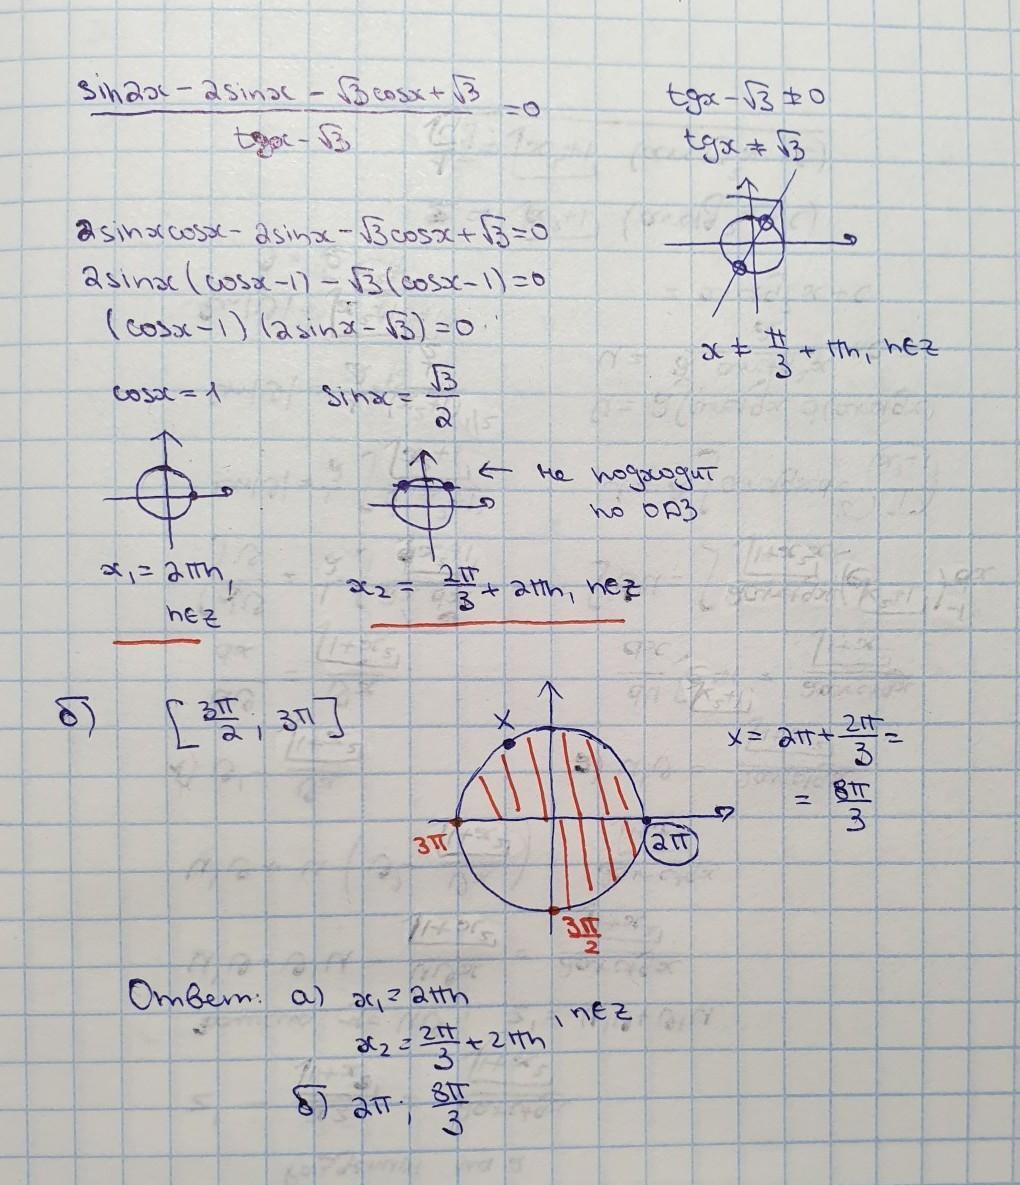 sin2x - 2sinx - √3cosx + √3 / tgx - √3 = 0
tgx - √3 ≠ 0
tgx ≠ √3
x ≠ π/3 + πn, n∈Z
2sinxcosx - 2sinx - √3cosx + √3 = 0
2sinx (cosx - 1) - √3 (cosx - 1) = 0
(cosx - 1) (2sinx - √3) = 0
cosx = 1
sinx = √3/2
← не подходит
по ОДЗ
x₁ = 2πn,
n∈Z
x₂ = 2π/3 + 2πn, n∈Z
б) [3π/2; 3π]
x
3π
2π
3π/2
x = 2π + 2π/3 =
= 8π/3
Ответ: а) x₁ = 2πn
x₂ = 2π/3 + 2πn , n∈Z
б) 2π; 8π/3